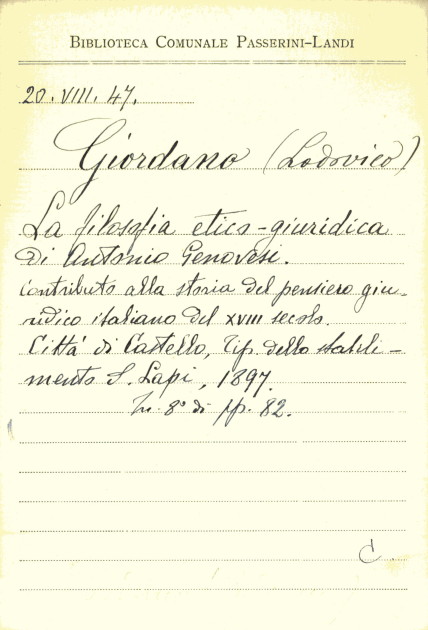 BIBLIOTECA COMUNALE PASSERINI-LANDI
20. VIII. 47.
Giordano (Lodovico)
La filosofia etico-giuridica
di Antonio Genovesi.
Contributo alla storia del pensiero giu-
ridico italiano del XVIII secolo.
Città di Castello, Tip. dello stabili-
mento S. Lapi, 1897.
In 8° di pp. 82.
C